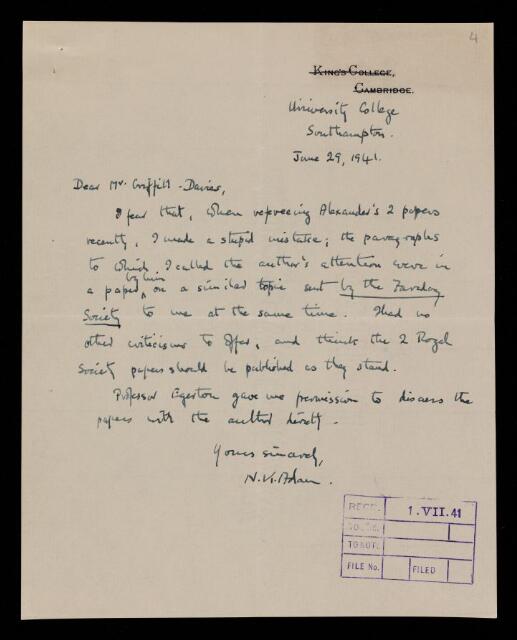 4
KING'S COLLEGE,
CAMBRIDGE.
University College
Southampton.
June 29, 1941.
Dear Mr. Griffith-Davies,
I fear that, when refereeing Alexander's 2 papers
recently, I made a stupid mistake; the paragraphs
to which I called the author's attention were in
by him
a paper on a similar topic sent by the Faraday
Society to me at the same time. I had no
other criticisms to offer, and think the 2 Royal
Society papers should be published as they stand.
Professor Egerton gave me permission to discuss the
papers with the author direct.
Yours sincerely,
N.K. Adam.
RECD. 1.VII.41
TO NOTE
FILE No. FILED